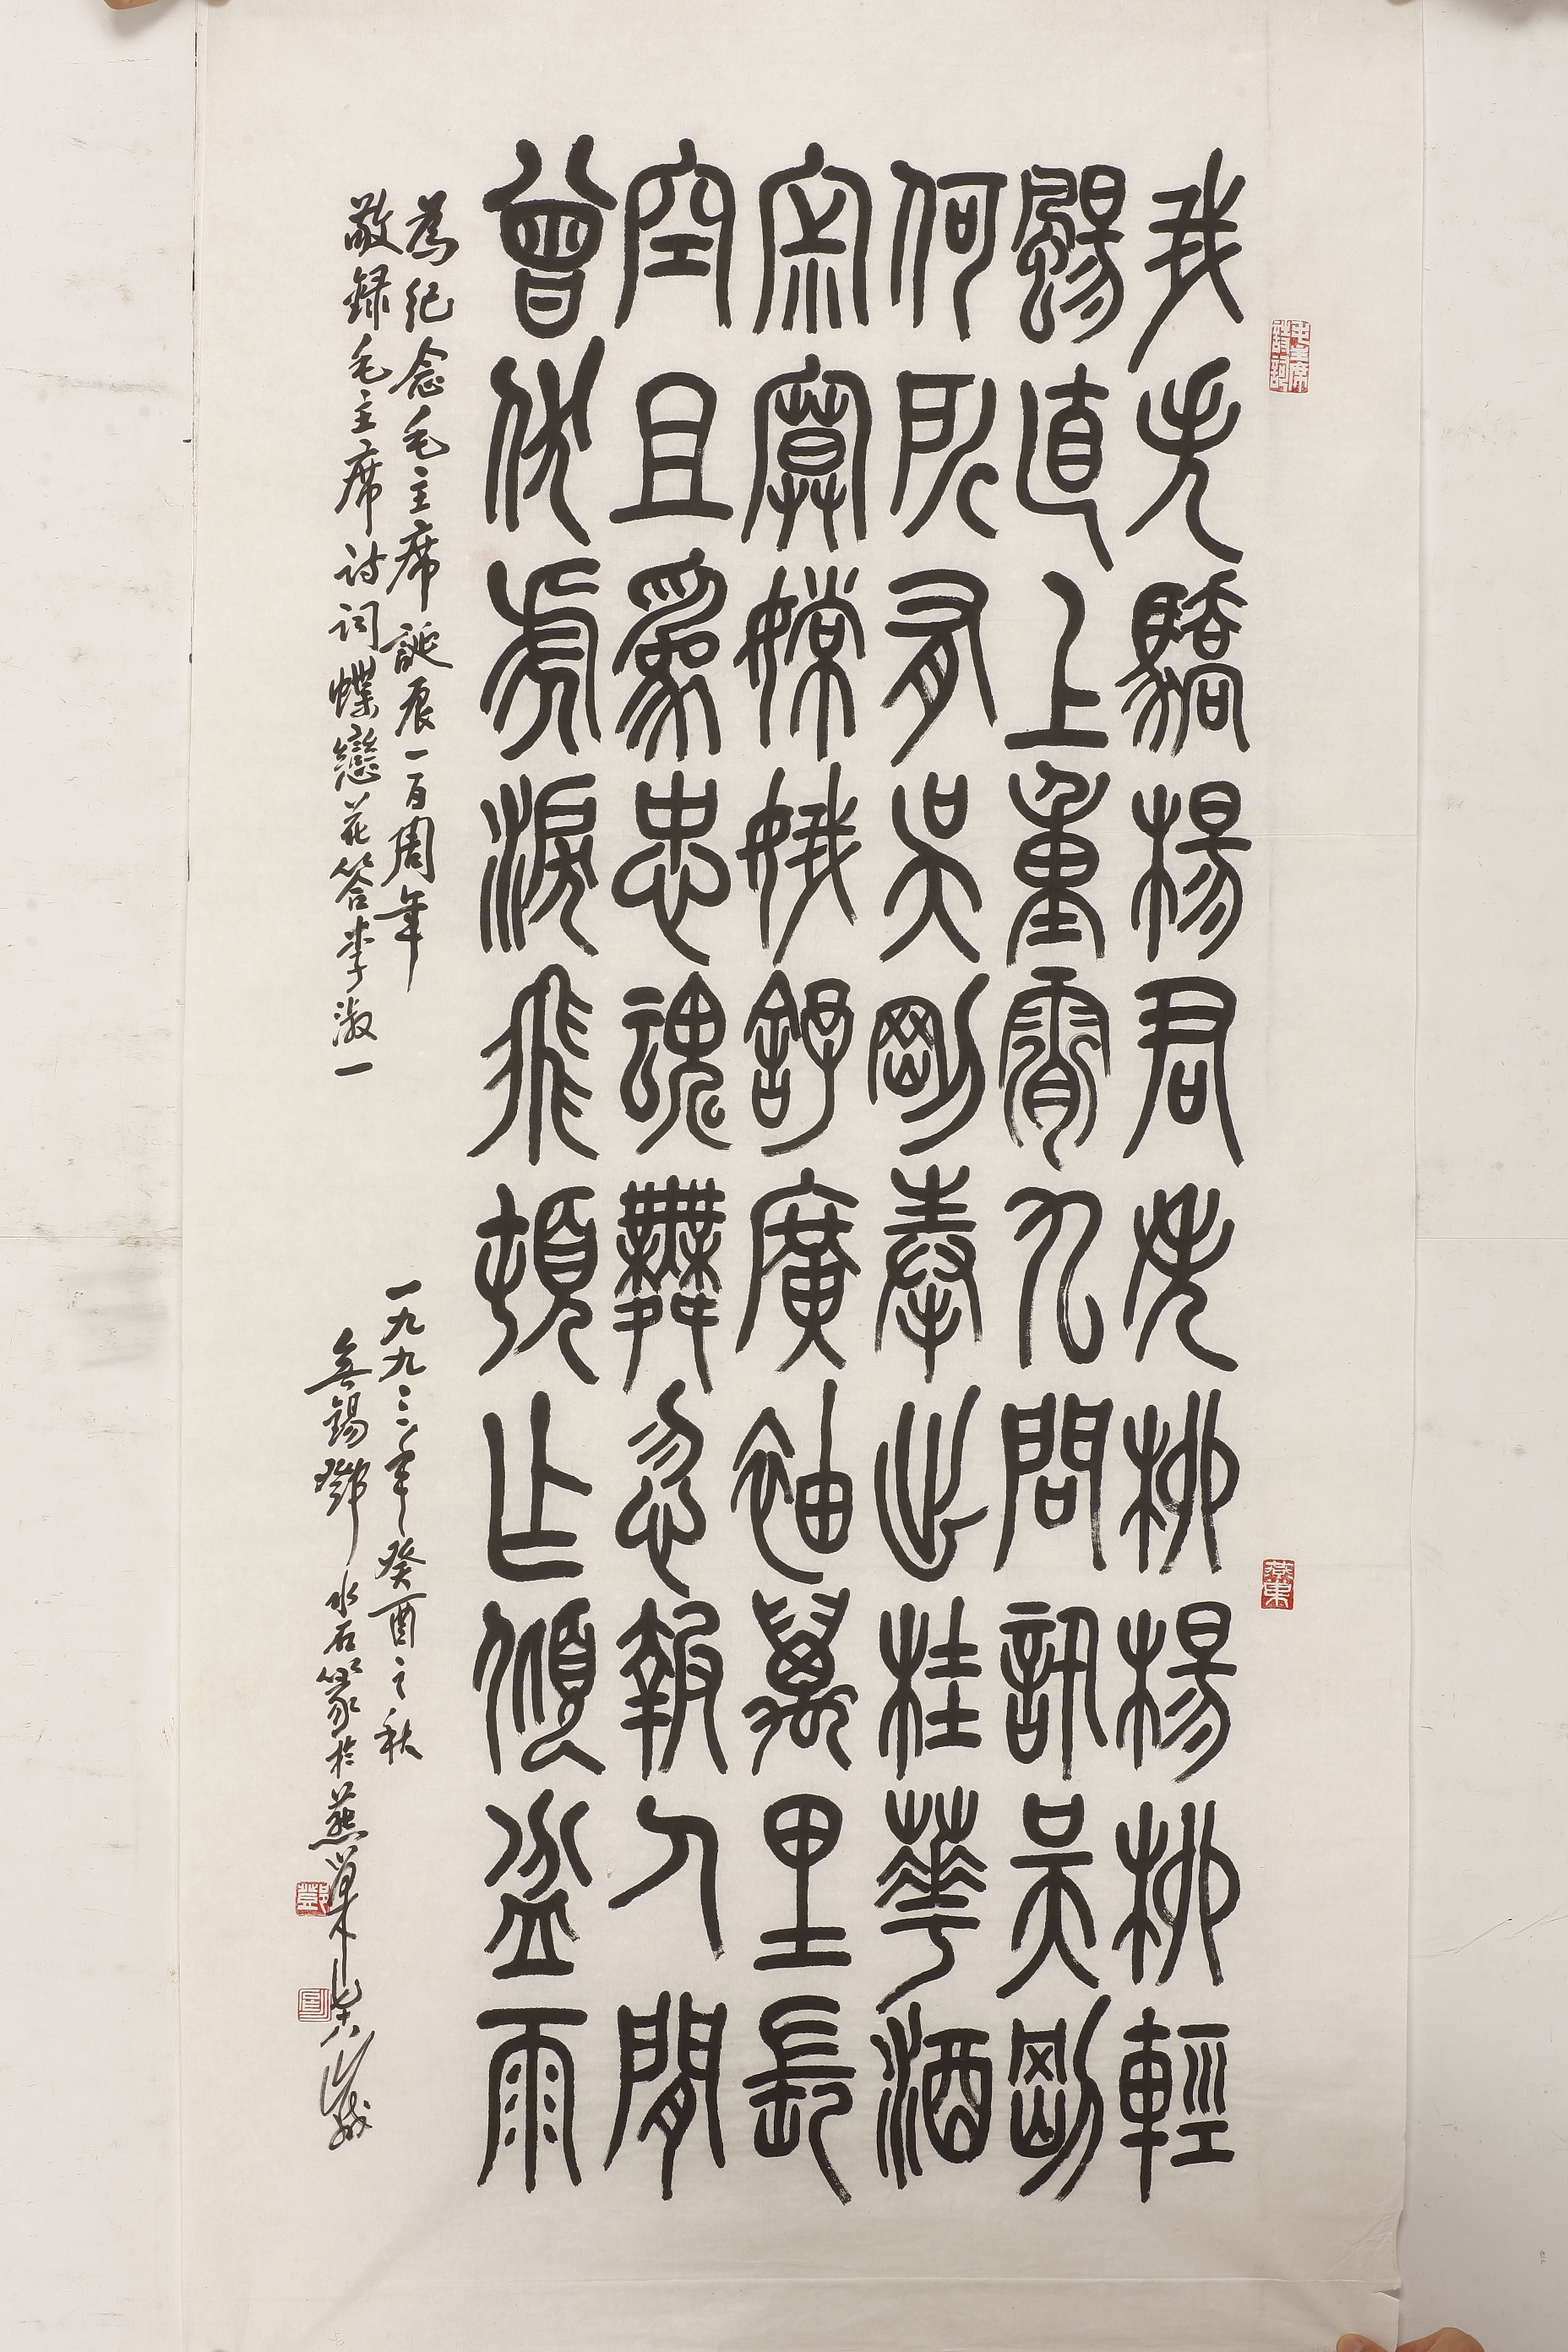 毛主席詩詞
燕巢
我失驕楊君失柳楊柳輕
颺直上重霄九問訊吳剛
何所有吳剛奉出桂華酒
寂寞嫦娥舒廣袖萬里長
空且為忠魂舞忽報人間
曾伏虎淚飛頓乍傾盆雨
為紀念毛主席誕辰一百周年 一九九三年癸酉之秋
敬録毛主席詩詞蝶戀花答李淑一 無錫鄧水石篆於燕巢七十八歲
鄧